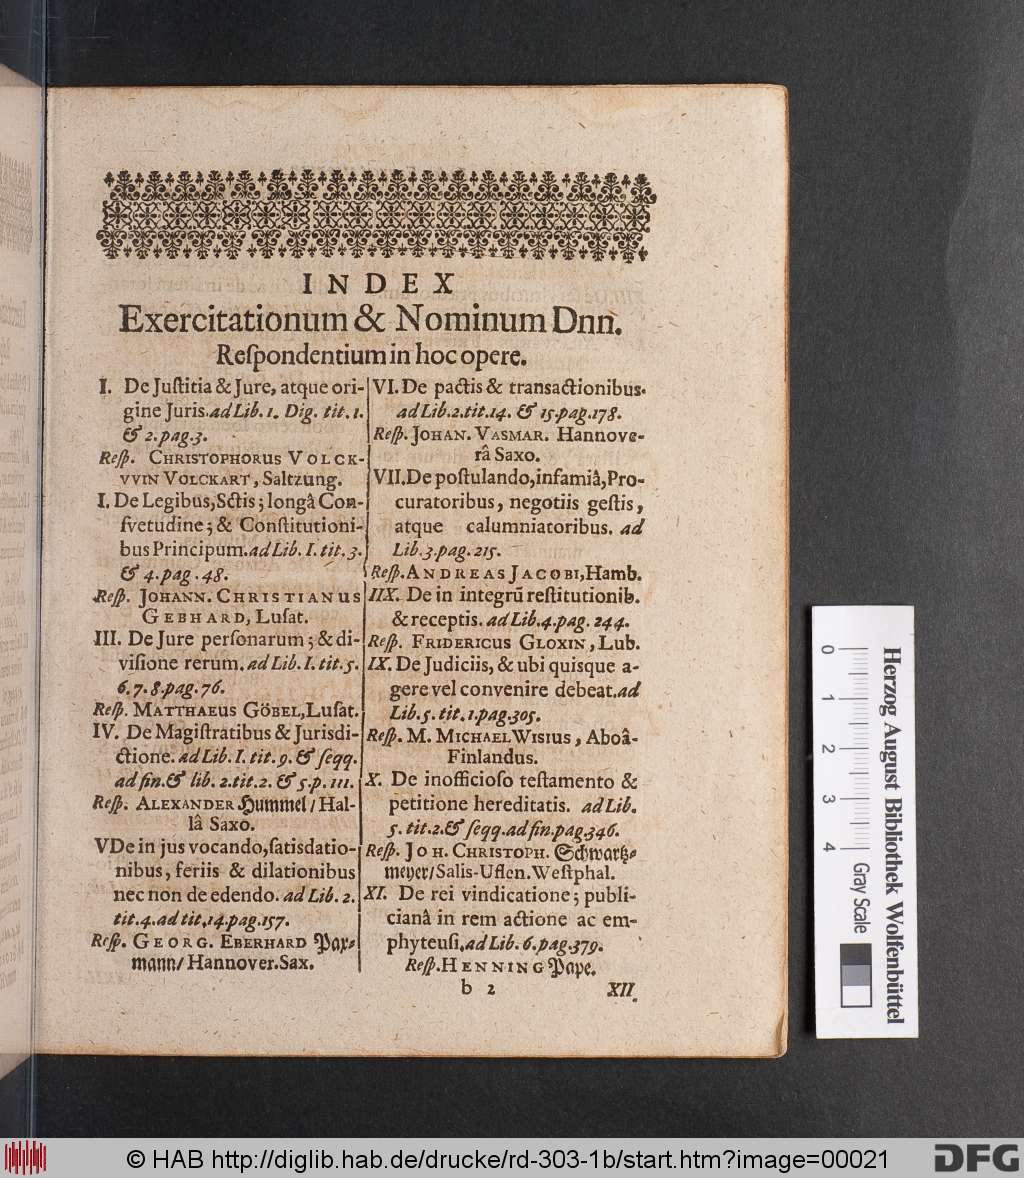 INDEX
Exercitationum & Nominum Dnn.
Reſpondentium in hoc opere.
I. De Juſtitia & Jure, atque ori-
gine Juris. ad Lib. 1. Dig. tit. 1.
& 2. pag. 3.
Reſp. CHRISTOPHORUS VOLCK-
VVIN VOLCKART, Saltzung.
I. De Legibus, Sctis; longâ Con-
ſvetudine; & Conſtitutioni-
bus Principum. ad Lib. I. tit. 3.
& 4. pag. 48.
Reſp. JOHANN. CHRISTIANUS
GEBHARD, Luſat.
III. De Jure perſonarum; & di-
viſione rerum. ad Lib. I. tit. 5.
6. 7. 8. pag. 76.
Reſp. MATTHAEUS GÖBEL, Luſat.
IV. De Magiſtratibus & Jurisdi-
ctione. ad Lib. I. tit. 9. & ſeqq.
ad fin. & lib. 2. tit. 2. & 5. p. 111.
Reſp. ALEXANDER Hummel / Hal-
lâ Saxo.
V De in jus vocando, ſatisdatio-
nibus, feriis & dilationibus
nec non de edendo. ad Lib. 2.
tit. 4. ad tit. 14. pag. 157.
Reſp. GEORG. EBERHARD Pax-
mann / Hannover. Sax.
VI. De pactis & transactionibus.
ad Lib. 2. tit. 14. & 15. pag. 178.
Reſp. JOHAN. VASMAR. Hannove-
râ Saxo.
VII. De poſtulando, infamiâ, Pro-
curatoribus, negotiis geſtis,
atque calumniatoribus. ad
Lib. 3. pag. 215.
Reſp. ANDREAS JACOBI, Hamb.
IIX. De in integrũ reſtitutionib.
& receptis. ad Lib. 4. pag. 244.
Reſp. FRIDERICUS GLOXIN, Lub.
IX. De Judiciis, & ubi quisque a-
gere vel convenire debeat. ad
Lib. 5. tit. 1. pag. 305.
Reſp. M. MICHAEL WISIUS, Aboâ-
Finlandus.
X. De inofficioſo teſtamento &
petitione hereditatis. ad Lib.
5. tit. 2. & ſeqq. ad fin. pag. 346.
Reſp. JOH. CHRISTOPH. Schwartz-
meyer / Salis-Uflen. Weſtphal.
XI. De rei vindicatione; publi-
cianâ in rem actione ac em-
phyteuſi. ad Lib. 6. pag. 379.
Reſp. HENNING Pape.
b 2 XII.
0 1 2 3 4
Herzog August Bibliothek Wolfenbüttel
Gray Scale
© HAB http://diglib.hab.de/drucke/rd-303-1b/start.htm?image=00021
DFG